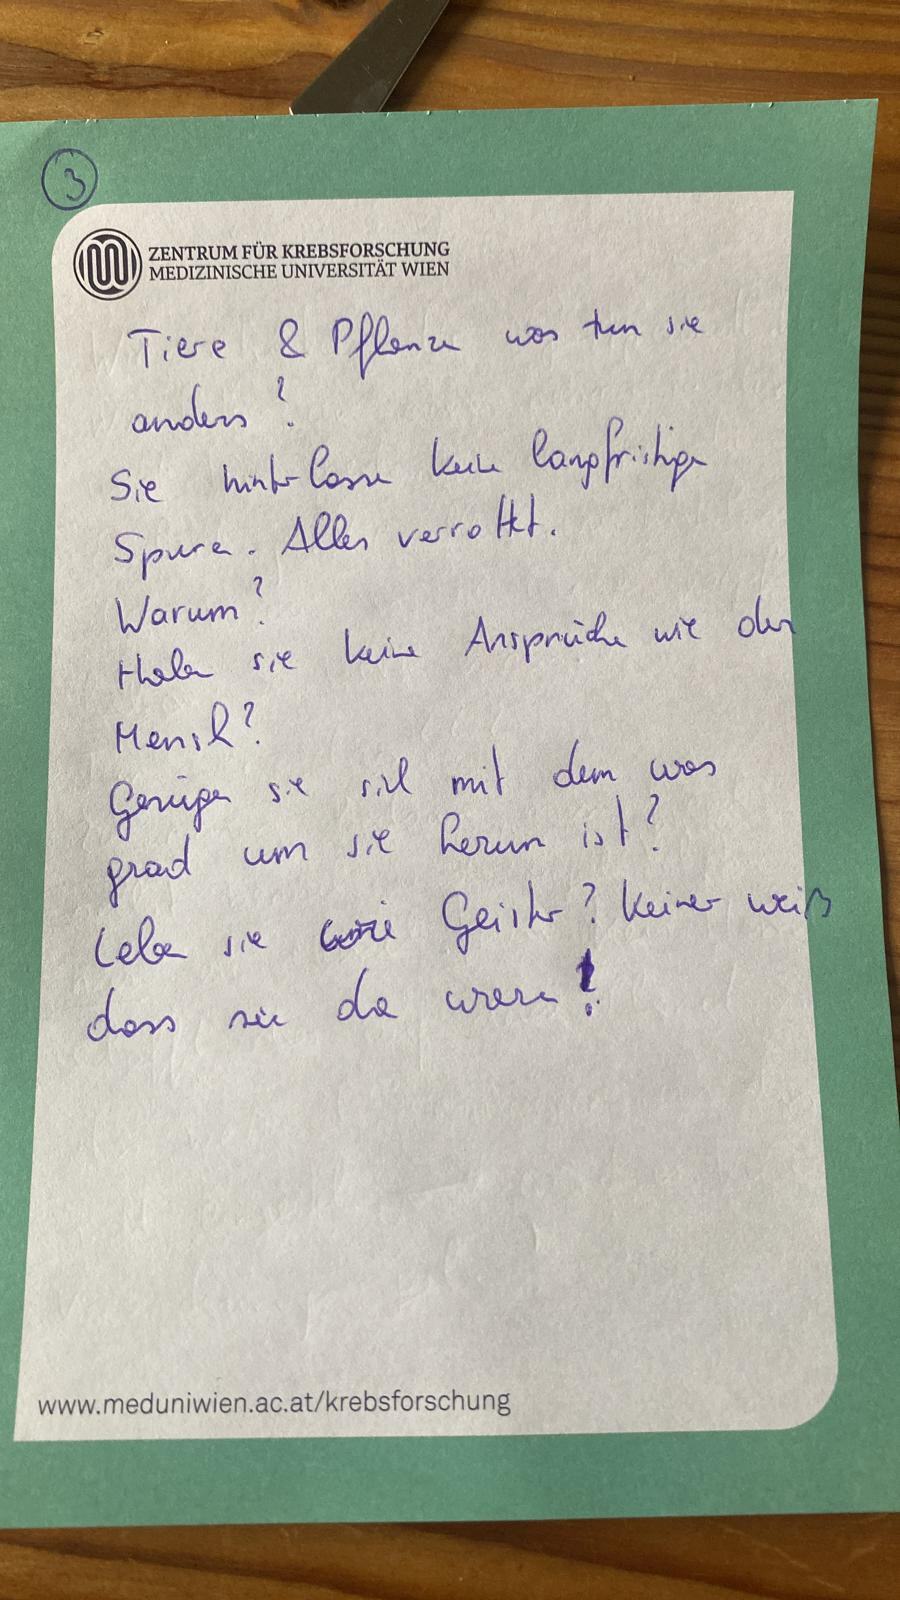 3
ZENTRUM FÜR KREBSFORSCHUNG
MEDIZINISCHE UNIVERSITÄT WIEN
Tiere & Pflanzen was tun sie
anders?
Sie hinterlassen keine langfristigen
Spuren. Alles verrottet.
Warum?
Haben sie keine Ansprüche wie der
Mensch?
Genügen sie sich mit dem was
grad um sie herum ist?
Leben sie wie Geister? Keiner weiß
dass sie da waren!
www.meduniwien.ac.at/krebsforschung